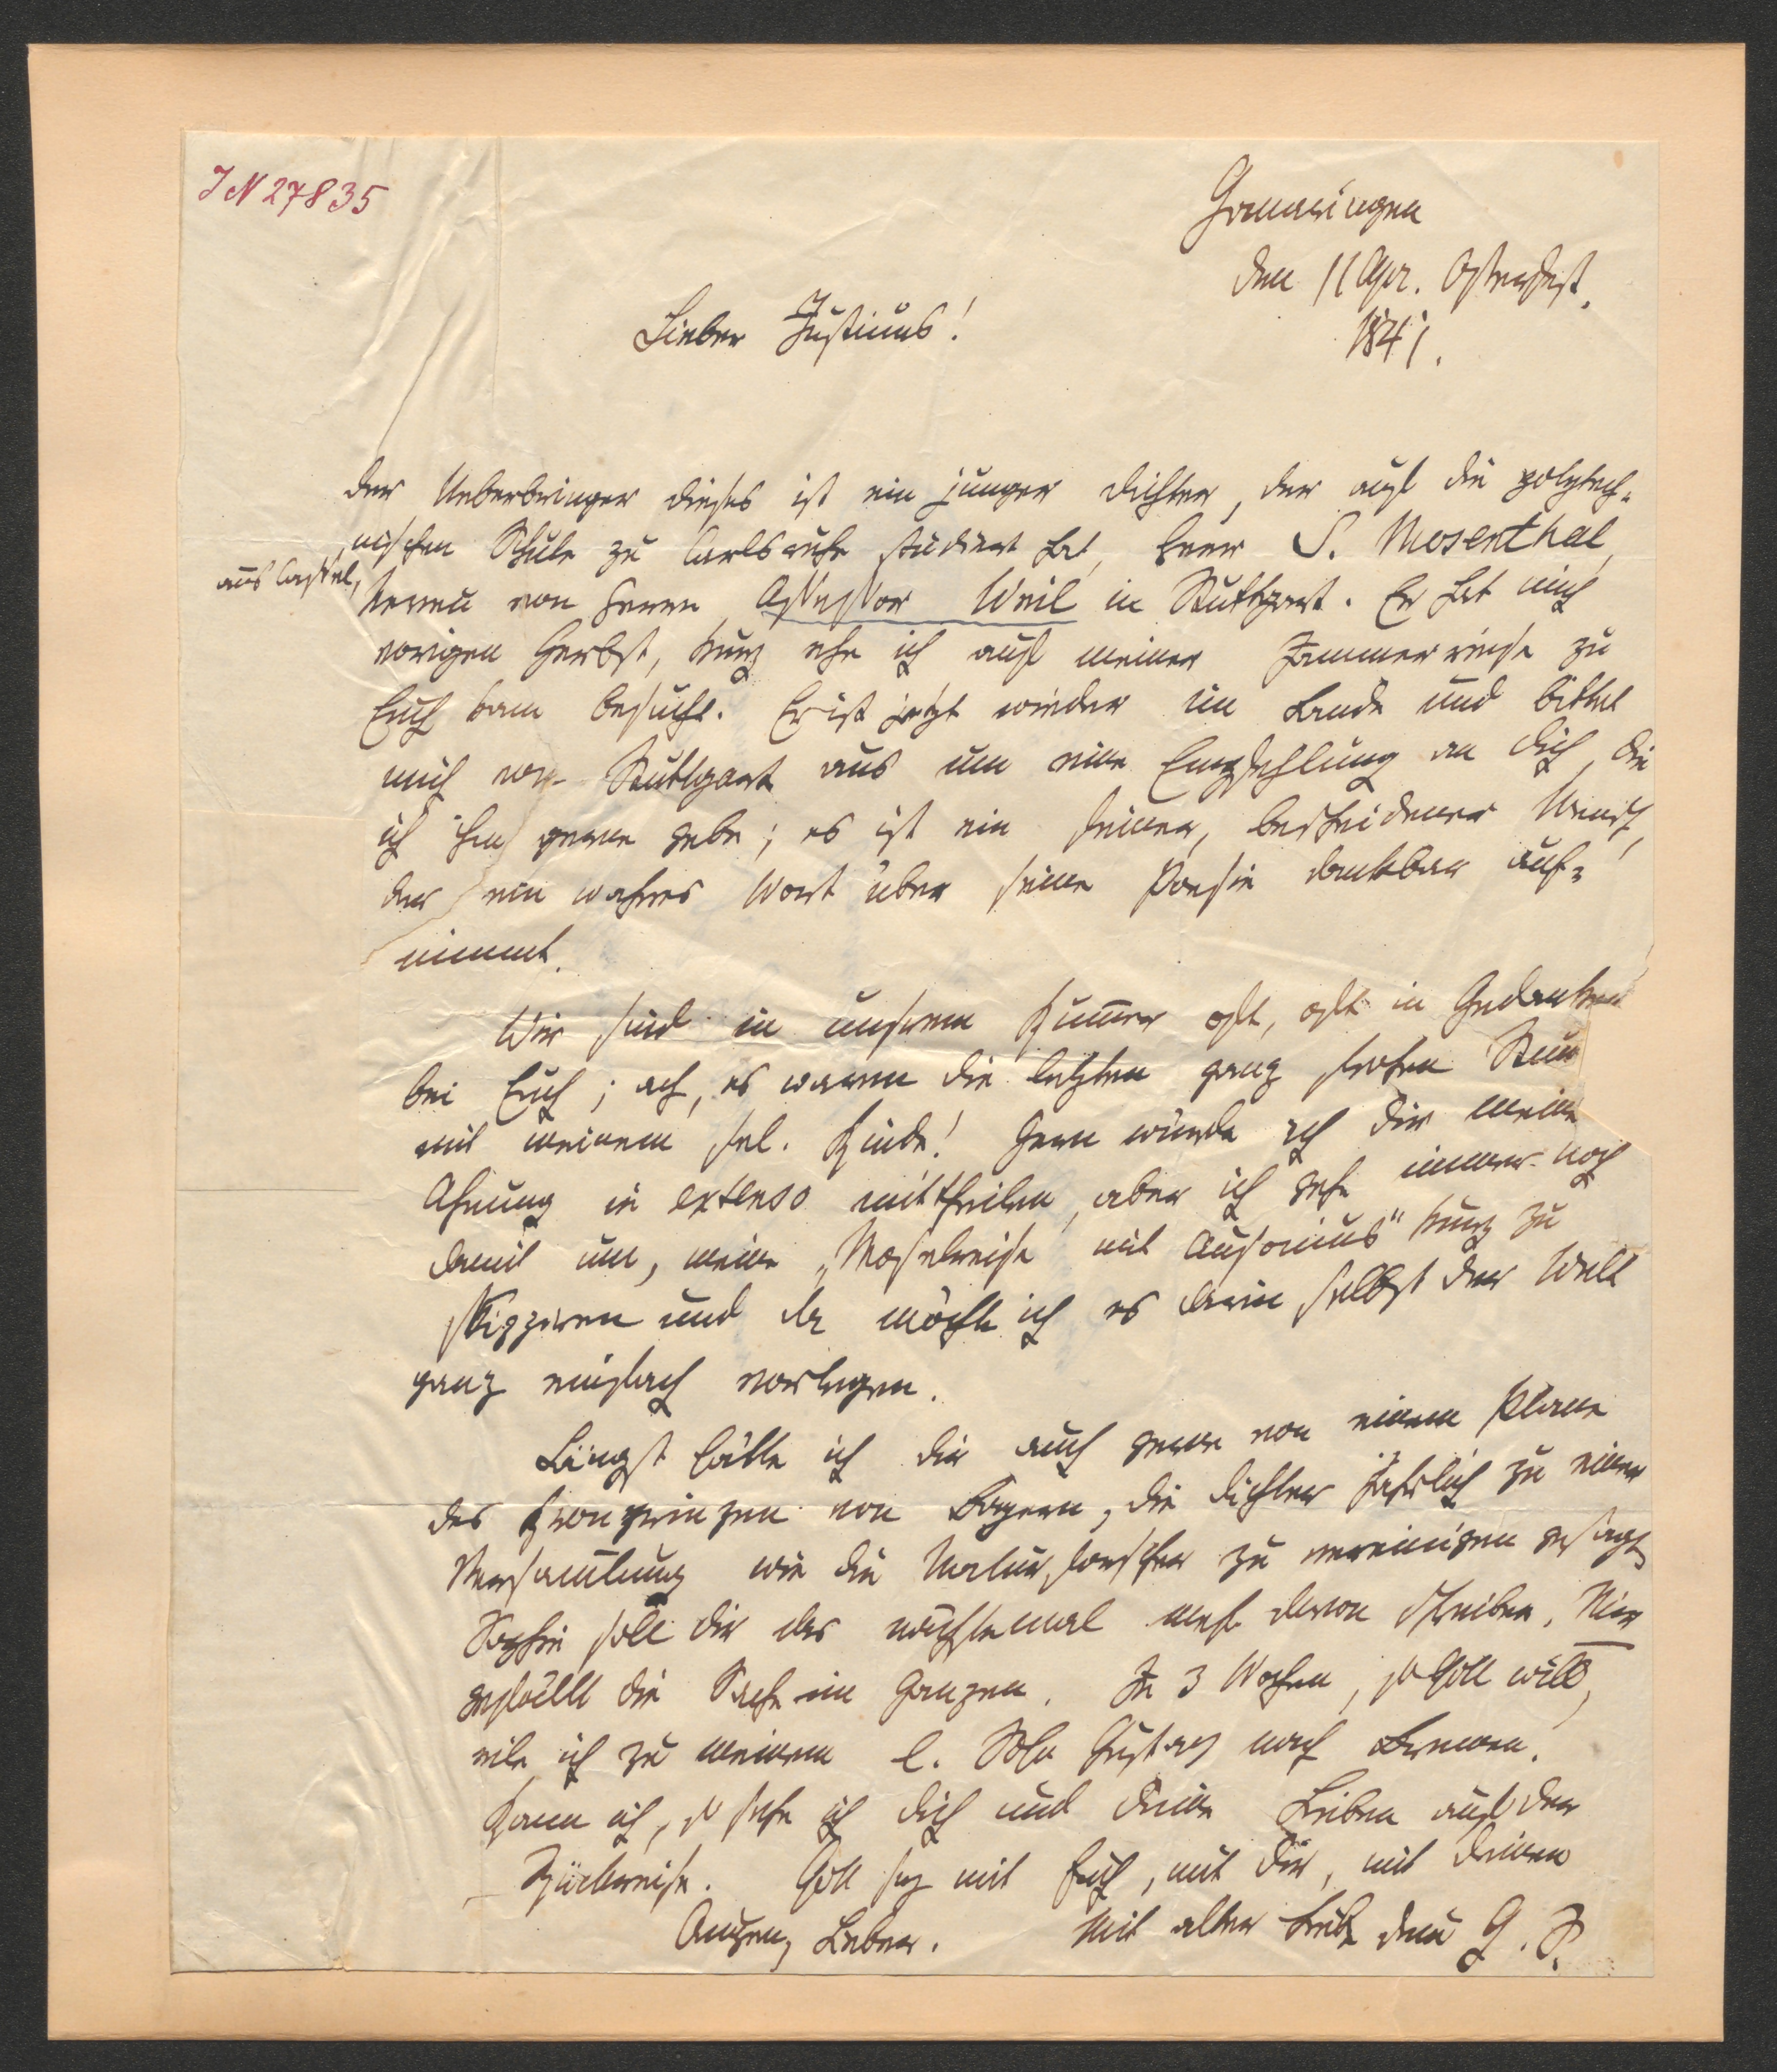 I N 27835
Gomaringen
den 11 Apr. Osterfest.
1841.
Lieber Justinus!
der Ueberbringer dieses ist ein junger Dichter, der auf die polytech-
nischen Schule zu Carlsruhe studiert hat, Herr S. Mosenthal,
aus Cassel,
von Herrn Assessor Weil in Stuttgart. Er hat mich
vorigen Herbst, kurz ehe ich auf meiner Jammerreise zu
Euch kam besucht. Er ist jetzt wieder im Lande und bittet
mich von Stuttgart aus um eine Empfehlung an dich, die
ich ihm gerne gebe; es ist ein feiner, bescheidener Mensch,
der ein wahres Wort über seine Poesie dankbar auf-
nimmt.
Wir sind in unserem Kummer oft, oft in Gedanken
bei Euch; ach, es waren die letzten ganz frohen Stun
mit meinem sel. Kinde! Gern würde ich dir meine
Ahnung in extenso mittheilen, aber ich gehe immer noch
damit um, meine „Moselreise mit Ausonius" kurz zu
skizziren und da möchte ich es darin selbst der Welt
ganz einfach vorlegen.
Längst hätte ich dir auch gerne von einem Plane
des Kronprinzen von Bayern, die Dichter jährlich zu einer
Versamlung wie die Naturforscher zu vereinigen gesagt
Sophie soll dir das nächstemal mehr davon schreiben. Mir
gefällt die Sache im Ganzen. In 3 Wochen, so Gott will,
eile ich zu meinem l. Sohn Gustav nach Bremen.
Kann ich, so sehe ich dich und deine Lieben auf der
Rückreise. Gott sey mit Euch, mit dir, mit deinen
Augen, Lieber. Mit alter Liebe dein G. S.